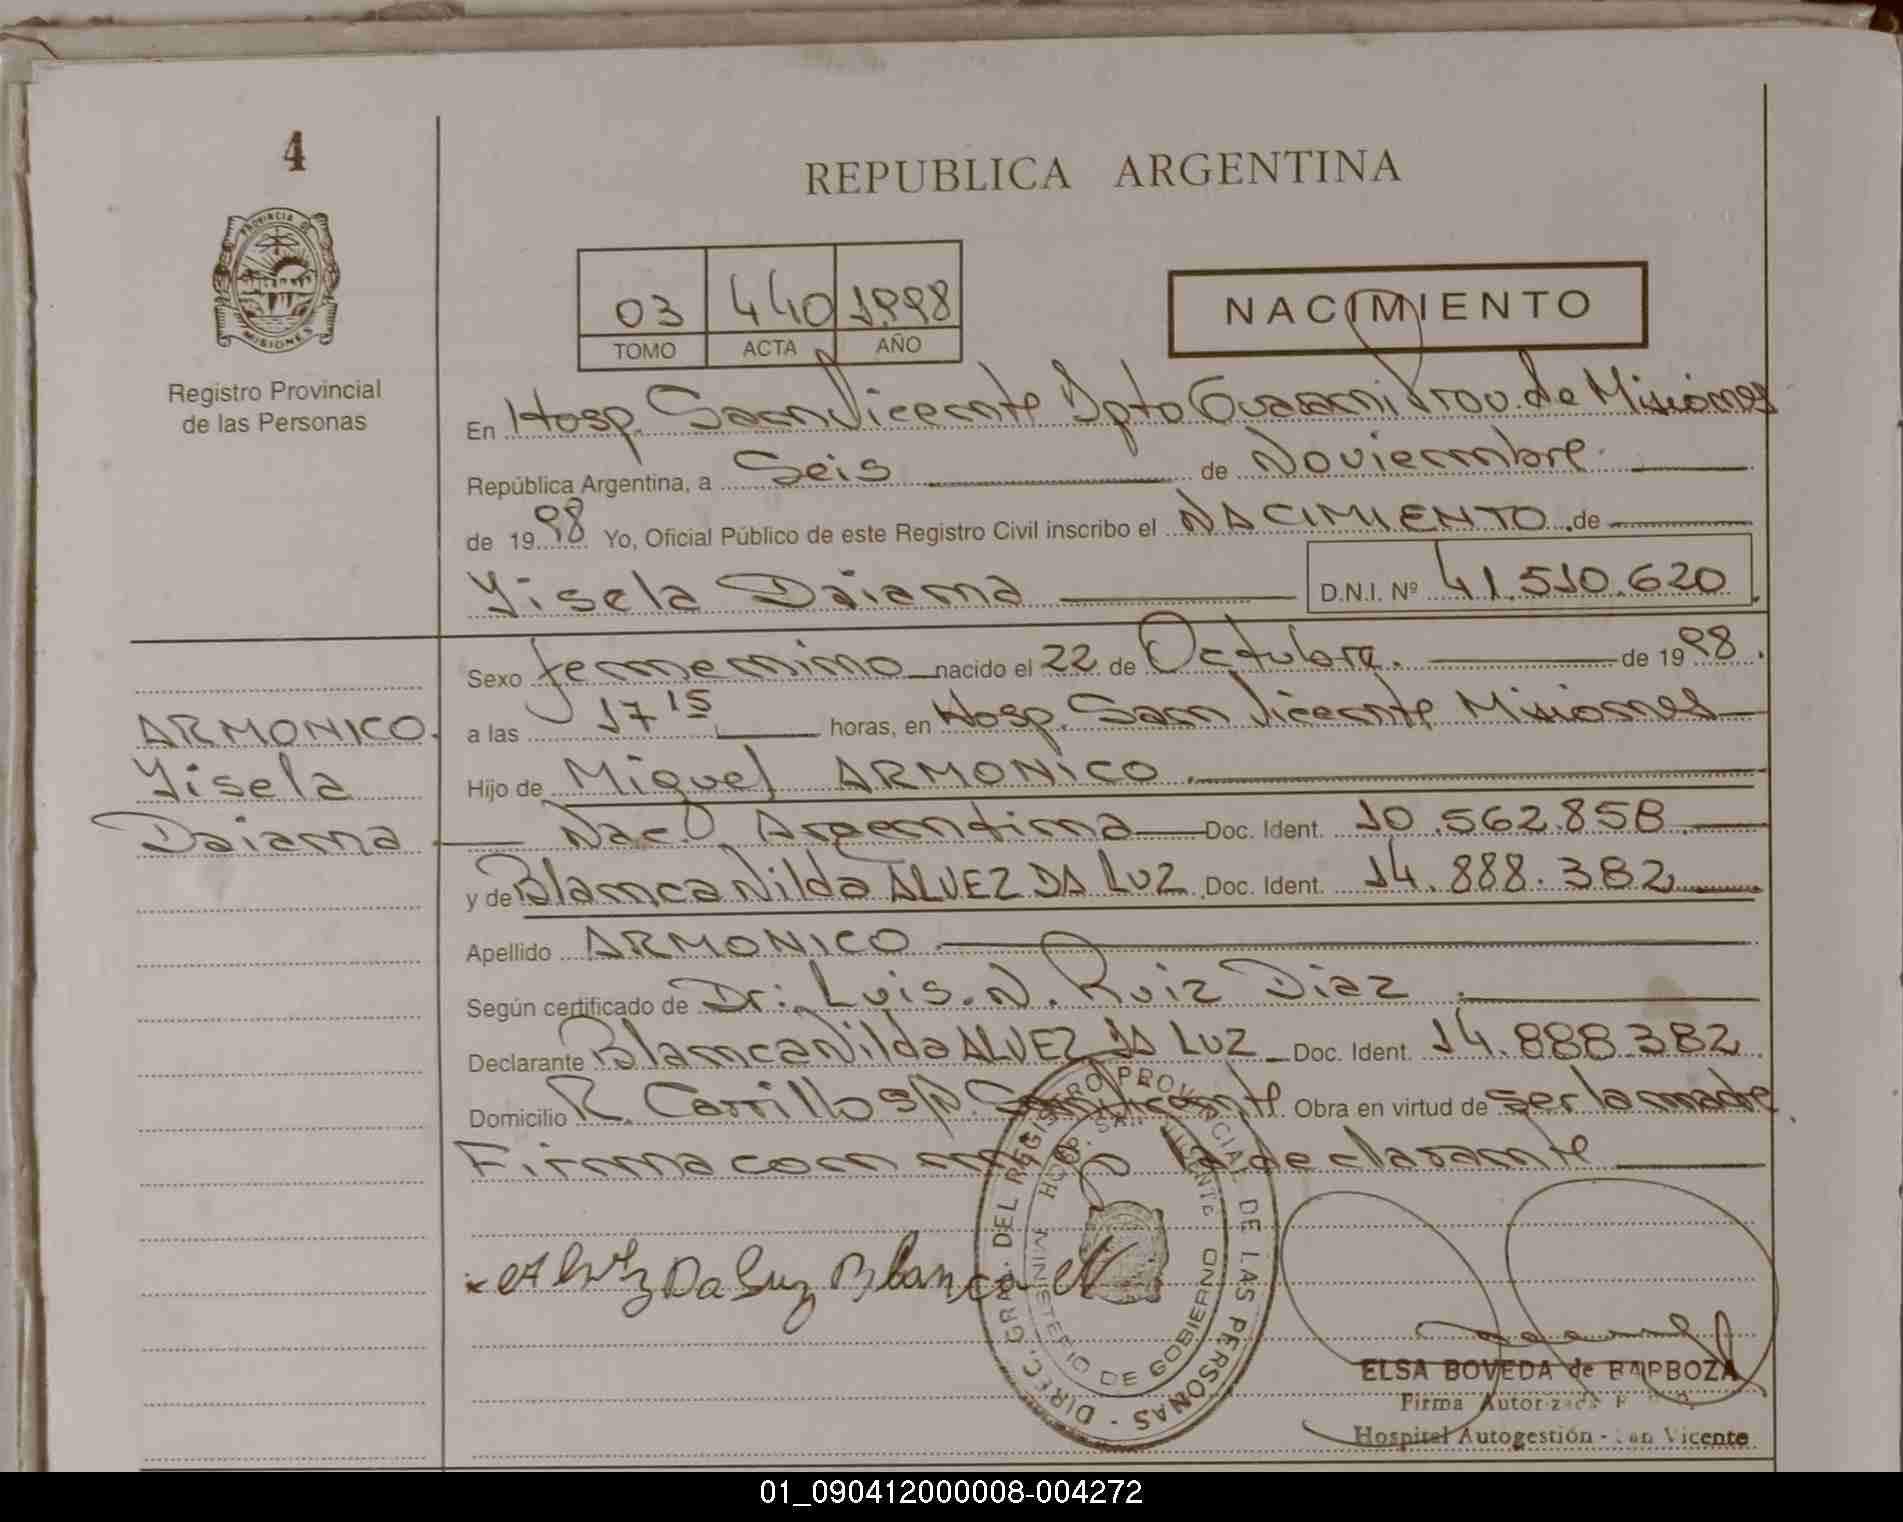 4
PROVINCIA DE
MISIONES
Registro Provincial
de las Personas
REPUBLICA ARGENTINA
03 440 1998
TOMO ACTA AÑO
NACIMIENTO
En Hosp. San Vicente Dpto Guarani Prov. de Misiones
República Argentina, a Seis de Noviembre
de 1998 Yo, Oficial Público de este Registro Civil inscribo el NACIMIENTO de
Yisela Daiana D.N.I. Nº 41.510.620
Sexo femenino nacido el 22 de Octubre. de 1998.
a las 17 15 horas, en Hosp. San Vicente Misiones
Hijo de Miguel ARMONICO.
Nac. Argentina Doc. Ident. 10.562.858
y de Blanca Nilda ALVEZ DA LUZ Doc. Ident. 14.888.382
Apellido ARMONICO.
Según certificado de Dr: Luis. N. Ruiz Diaz
Declarante Blanca Nilda ALVEZ DA LUZ Doc. Ident. 14.888.382
Domicilio R. Carrillo s/N. San Vicente. Obra en virtud de ser la madre
Firma con migo la declarante
ARMONICO.
Yisela
Daiana
Alvez Da Luz Blanca N
DIREC. GRAL. DEL REGISTRO PROVINCIAL DE LAS PERSONAS
HOSP. SAN VICENTE
MINISTERIO DE GOBIERNO
ELSA BOVEDA de BARBOZA
Firma Autorizada
Hospital Autogestión - San Vicente
01_090412000008-004272